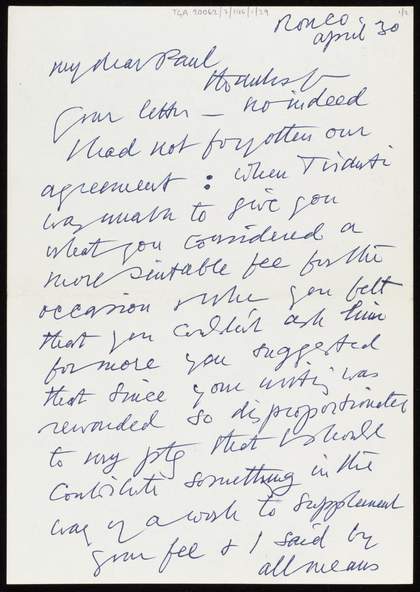 TGA 20062/3/146/1/29
1/2
Ronco
april 30
my dear Paul
Thanks for
your letter — no indeed
I had not forgotten our
agreement : when
was unable to give you
what you considered a
more suitable fee for the
occasion & when you felt
that you couldn't ask him
for more you suggested
that since your writing was
rewarded so disproportionately
to my ptg that I should
contribute something in the
way of a work to supplement
your fee & I said by
all means